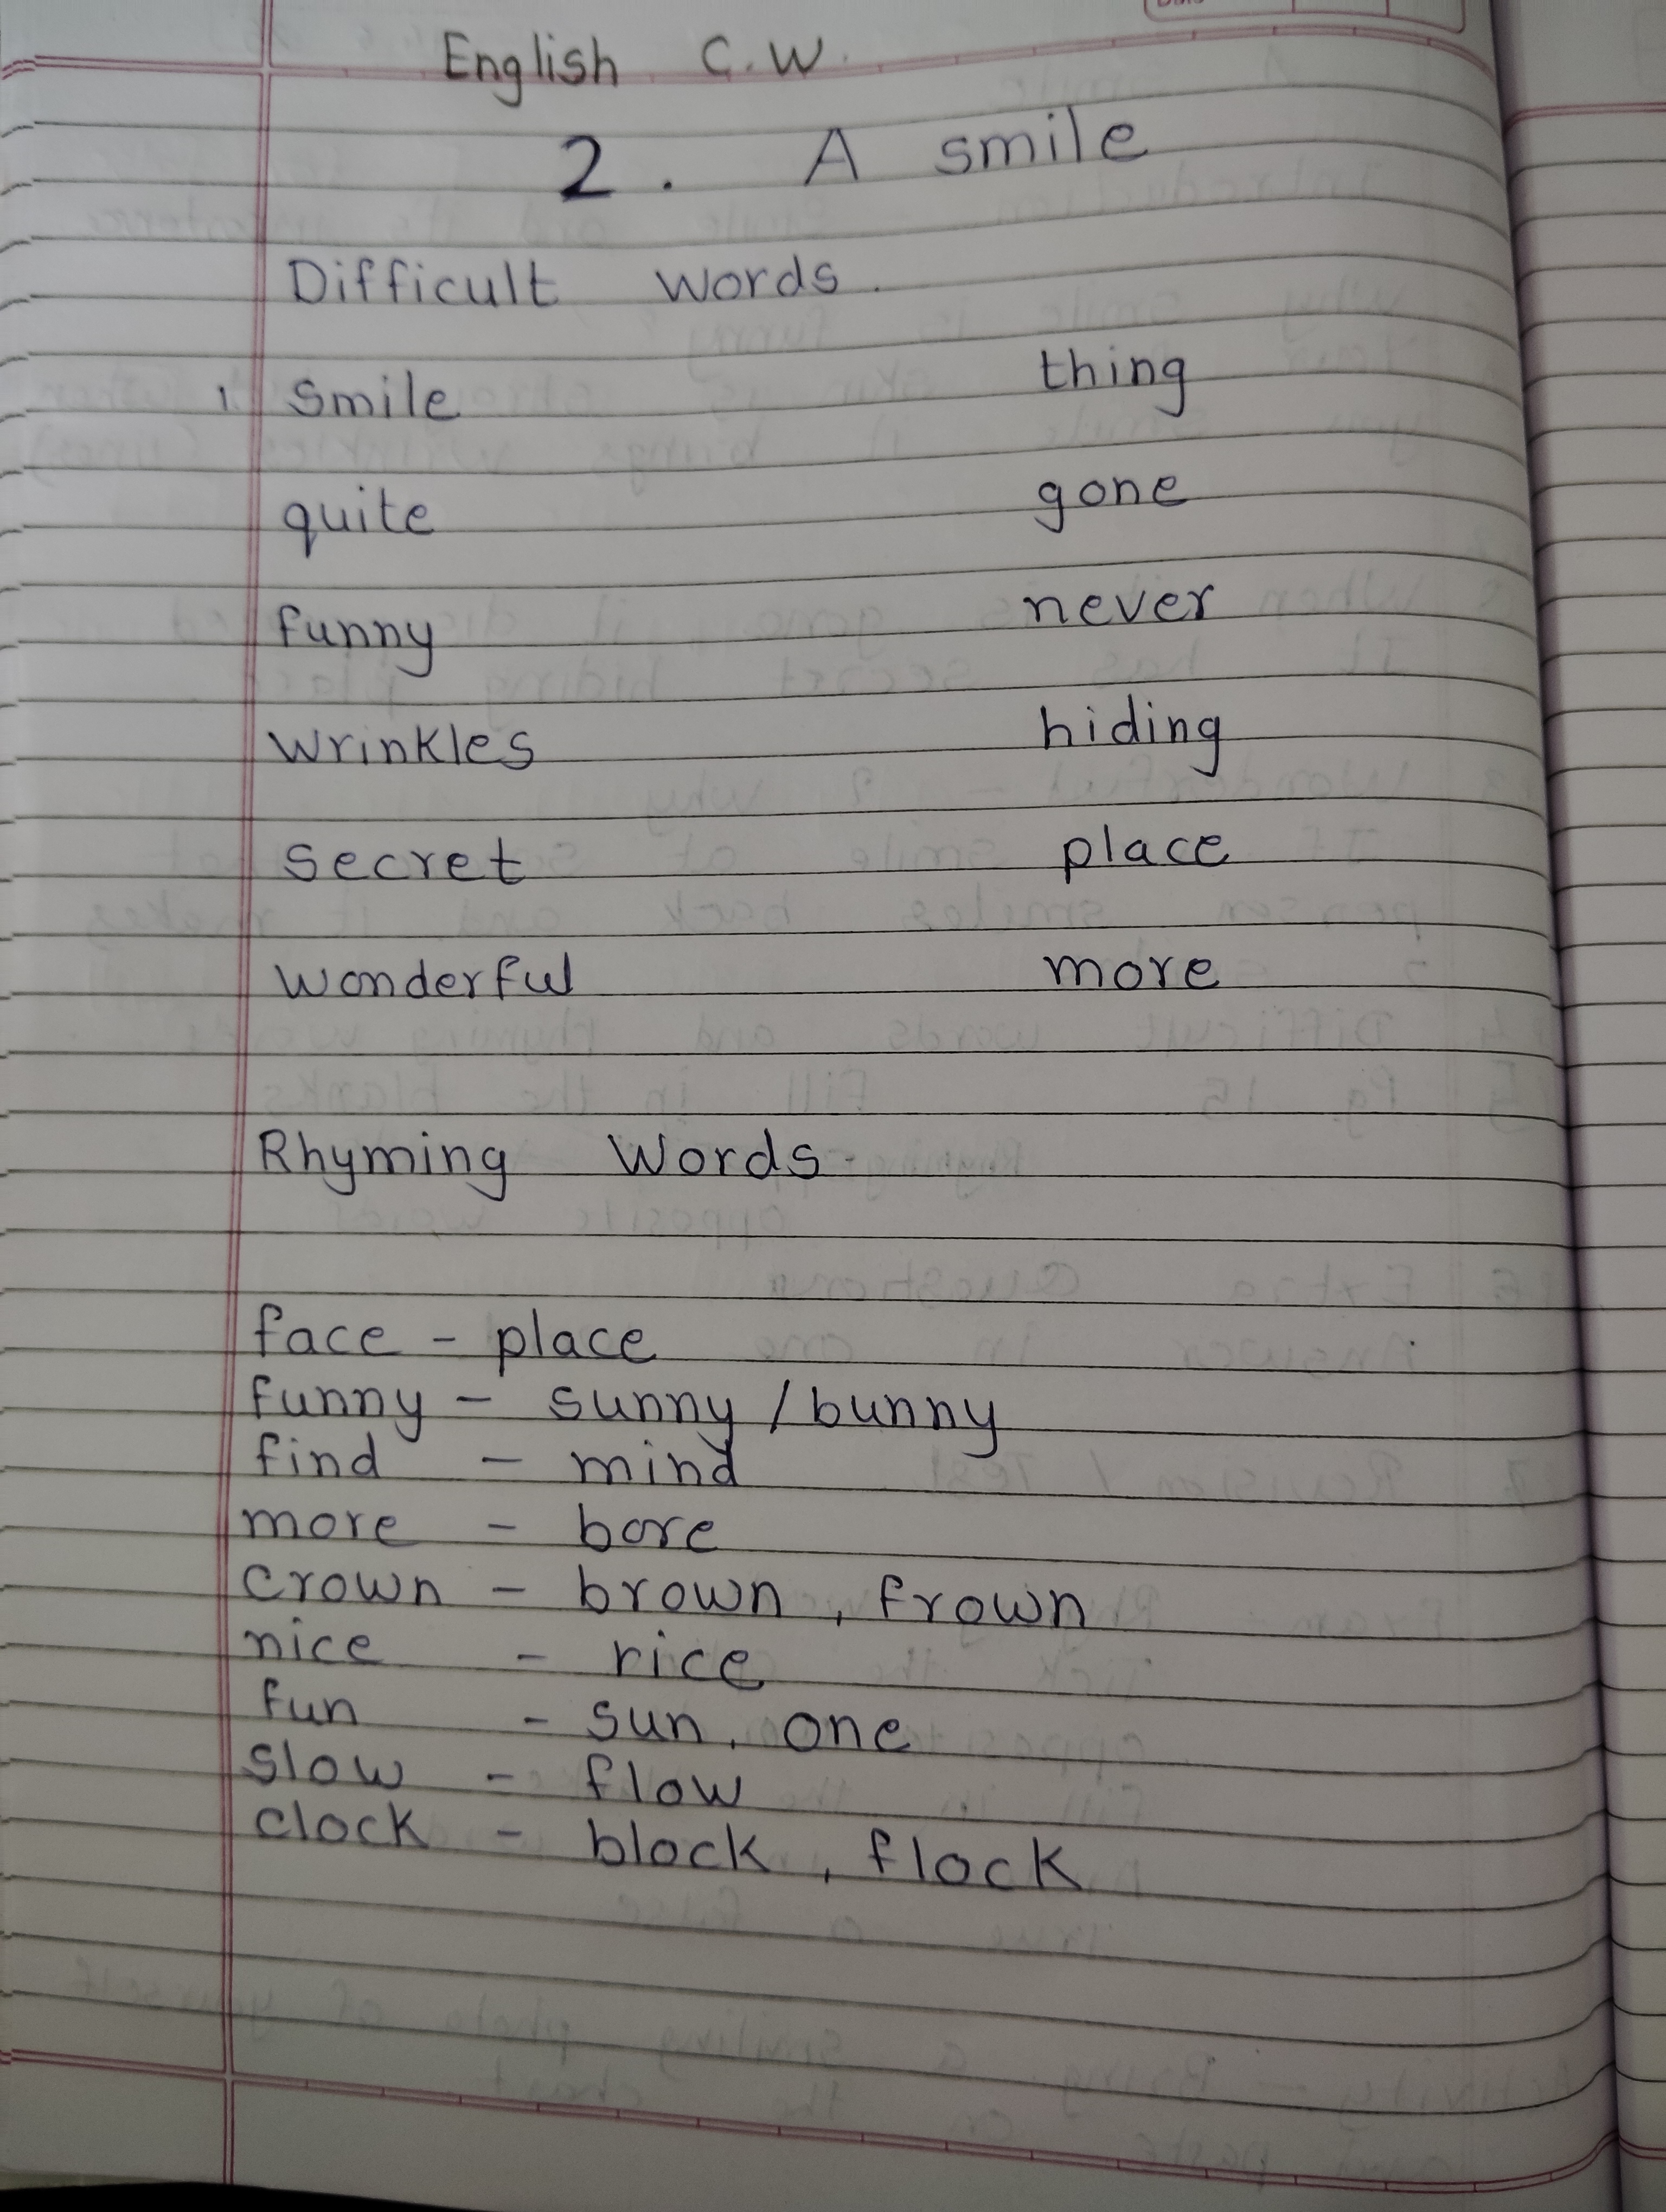 English C.W.
2. A smile
Difficult words.
1. Smile thing
quite gone
funny never
wrinkles hiding
secret place
wonderful more
Rhyming Words
face - place
funny - sunny / bunny
find - mind
more - bore
crown - brown, frown
nice - rice
fun - sun, one
slow - flow
clock - block, flock